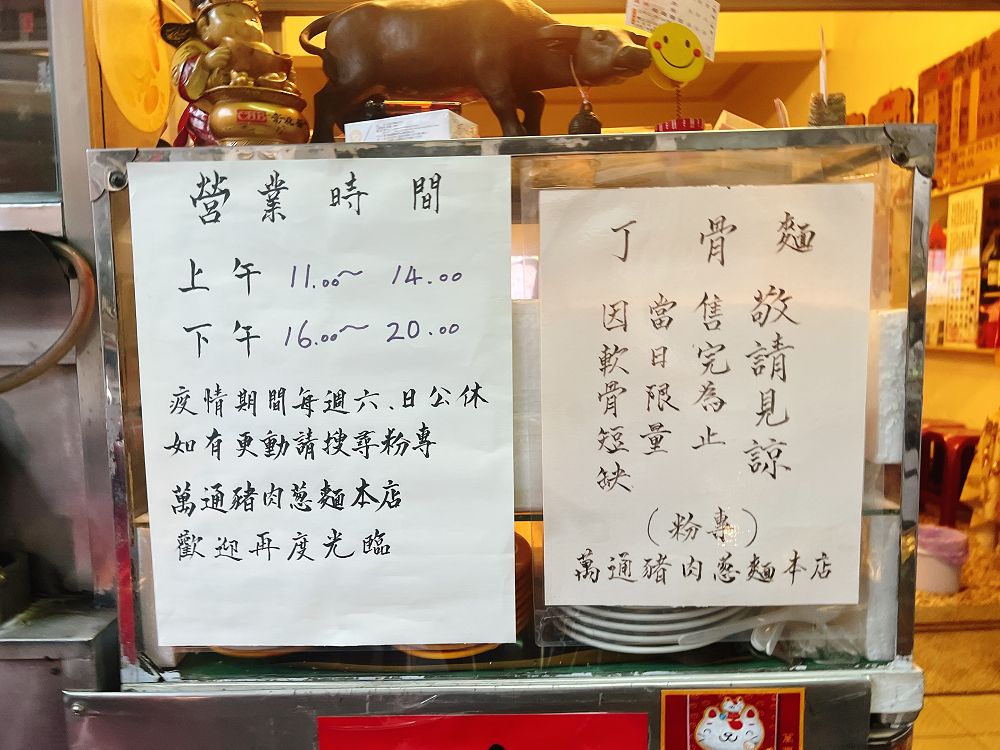 營業時間
上午 11.00~ 14.00
下午 16.00~ 20.00
疫情期間每週六、日公休
如有更動請搜尋粉專
萬通豬肉蔥麵本店
歡迎再度光臨
丁骨麵
因軟骨短缺
當日限量
售完為止
敬請見諒
(粉專)
萬通豬肉蔥麵本店
CHB